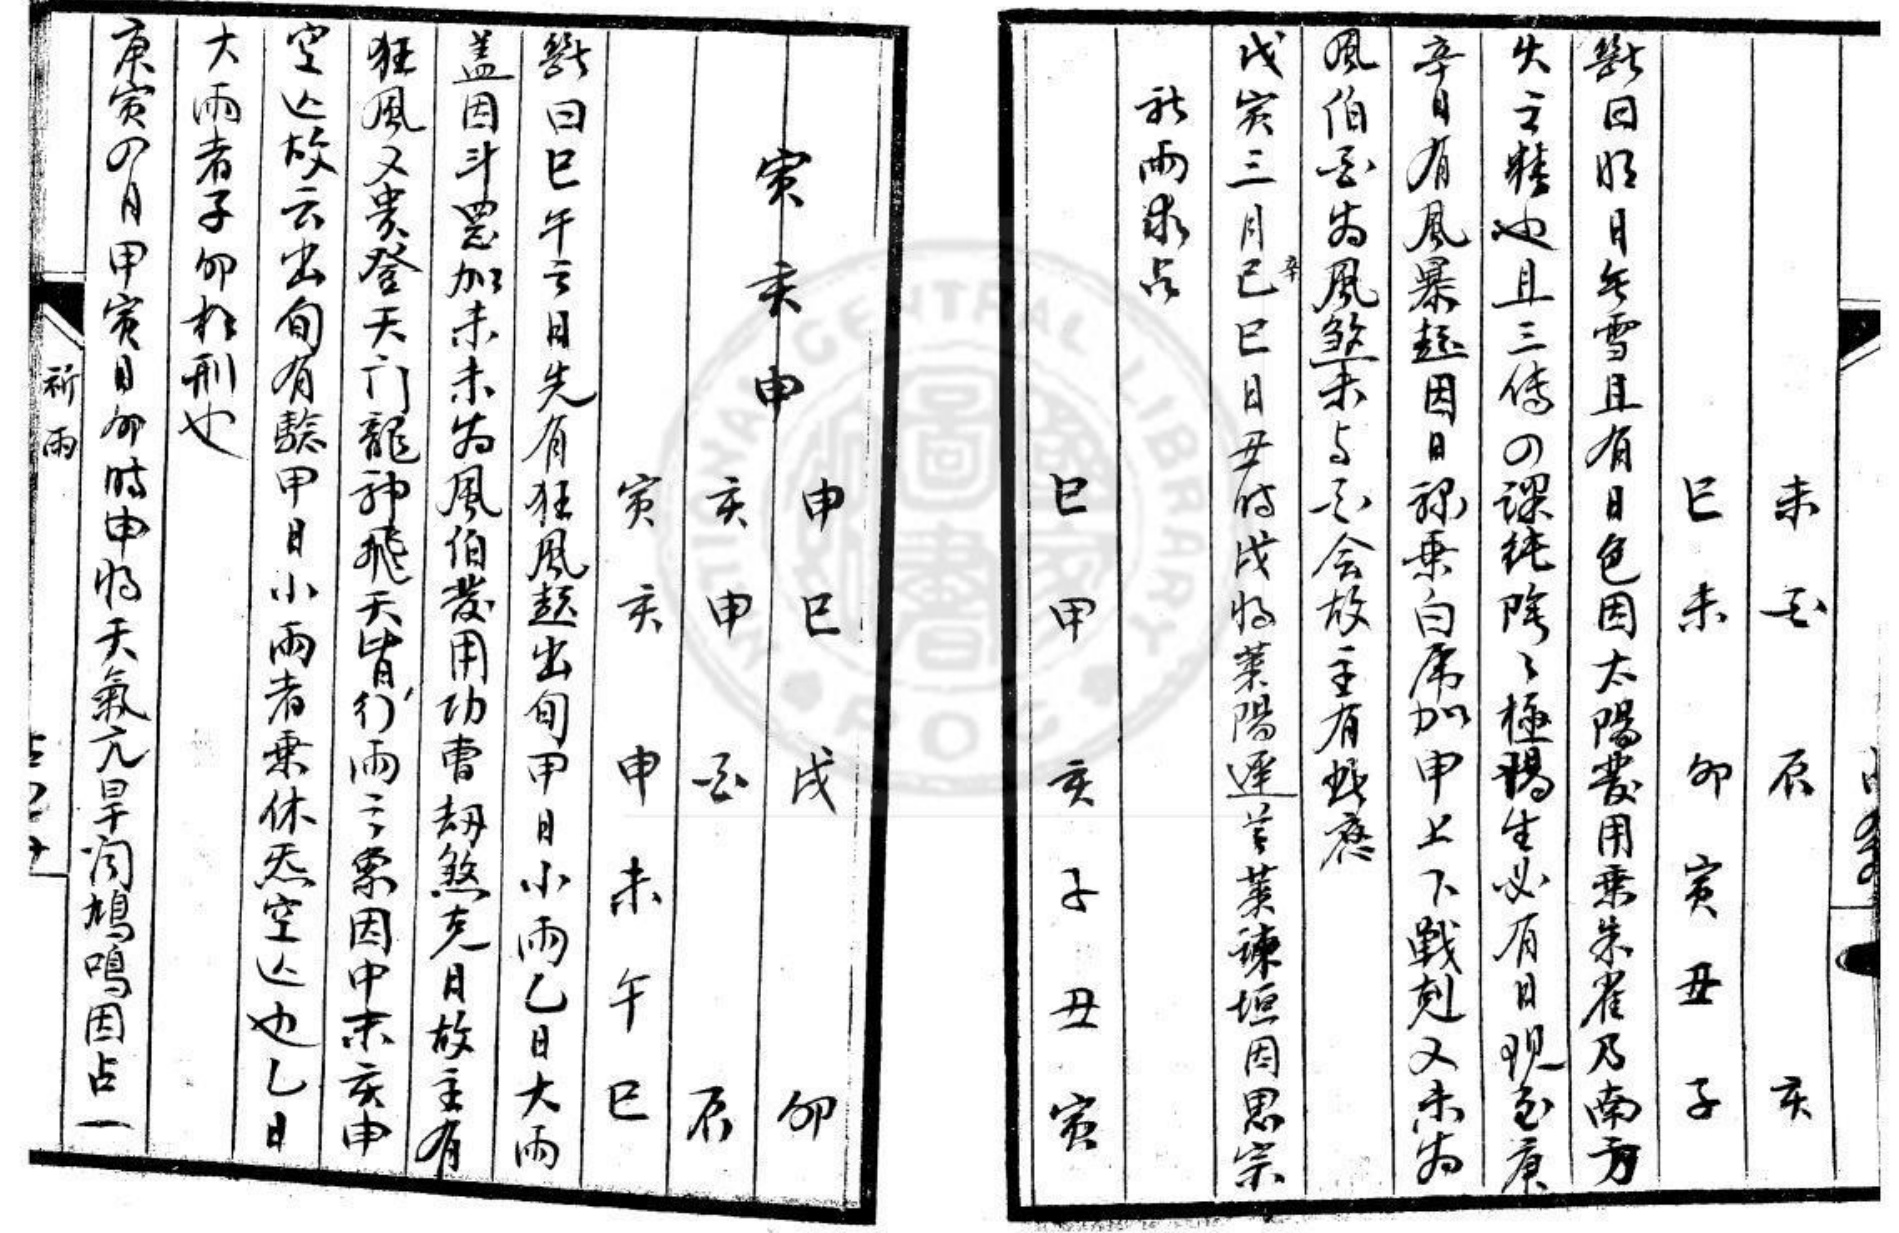 未 酉 辰 亥
巳 未 卯 寅 丑 子
斷曰明日無雪且有日色因太陽發用乘朱雀乃南方
火之精也且三傳四課純陰陰極陽生必有日現至庚
辛日有風暴起因日祿乘白虎加申上下戰剋又未為
風伯酉為風煞未与酉会故主有此應
戊寅三月己巳日丑時戌將萊陽遲芝萊諫垣因思宗
祈雨求占
巳 甲 亥 子 丑 寅
寅 亥 申
申 巳 戌 卯
亥 申 酉 辰
寅 亥 申 未 午 巳
斷曰巳午之日先有狂風起出旬甲日小雨乙日大雨
蓋因斗罡加未未為風伯發用功曹劫煞克日故主有
狂風又貴登天門龍神飛天皆行雨之象因中末亥申
空亡故云出旬有驗甲日小雨者乘休炁空亡也乙日
大雨者子卯相刑也
庚寅四月甲寅日卯時申將天氣亢旱闻鳩鳴因占一
祈雨